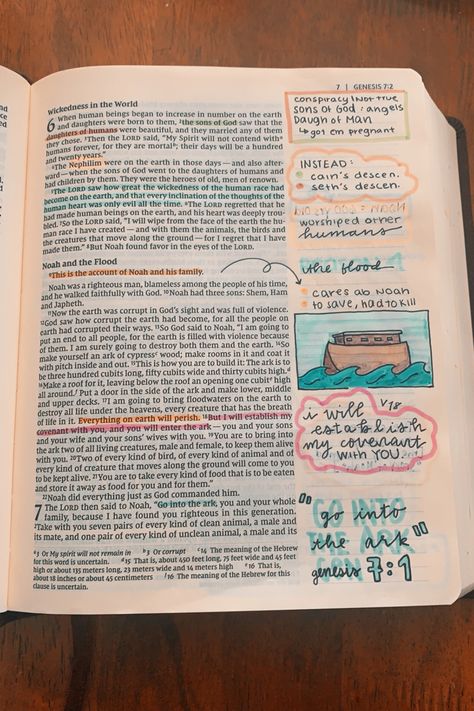 7 | GENESIS 7:2
Wickedness in the World
6 When human beings began to increase in number on the earth
and daughters were born to them, ²the sons of God saw that the
daughters of humans were beautiful, and they married any of them
they chose. ³Then the LORD said, “My Spirit will not contend withᵃ
humans forever, for they are mortalᵇ; their days will be a hundred
and twenty years.”
⁴The Nephilim were on the earth in those days—and also after-
ward—when the sons of God went to the daughters of humans and
had children by them. They were the heroes of old, men of renown.
⁵The LORD saw how great the wickedness of the human race had
become on the earth, and that every inclination of the thoughts of the
human heart was only evil all the time. ⁶The LORD regretted that he
had made human beings on the earth, and his heart was deeply trou-
bled. ⁷So the LORD said, “I will wipe from the face of the earth the hu-
man race I have created—and with them the animals, the birds and
the creatures that move along the ground—for I regret that I have
made them.” ⁸But Noah found favor in the eyes of the LORD.
Noah and the Flood
⁹This is the account of Noah and his family.
Noah was a righteous man, blameless among the people of his time,
and he walked faithfully with God. ¹⁰Noah had three sons: Shem, Ham
and Japheth.
¹¹Now the earth was corrupt in God’s sight and was full of violence.
¹²God saw how corrupt the earth had become, for all the people on
earth had corrupted their ways. ¹³So God said to Noah, “I am going to
put an end to all people, for the earth is filled with violence because
of them. I am surely going to destroy both them and the earth. ¹⁴So
make yourself an ark of cypressᶜ wood; make rooms in it and coat it
with pitch inside and out. ¹⁵This is how you are to build it: The ark is to
be three hundred cubits long, fifty cubits wide and thirty cubits high.ᵈ
¹⁶Make a roof for it, leaving below the roof an opening one cubitᵉ high
all around.ᶠ Put a door in the side of the ark and make lower, middle
and upper decks. ¹⁷I am going to bring floodwaters on the earth to
destroy all life under the heavens, every creature that has the breath
of life in it. Everything on earth will perish. ¹⁸But I will establish my
covenant with you, and you will enter the ark—you and your sons
and your wife and your sons’ wives with you. ¹⁹You are to bring into
the ark two of all living creatures, male and female, to keep them alive
with you. ²⁰Two of every kind of bird, of every kind of animal and of
every kind of creature that moves along the ground will come to you
to be kept alive. ²¹You are to take every kind of food that is to be eaten
and store it away as food for you and for them.”
²²Noah did everything just as God commanded him.
7 The LORD then said to Noah, “Go into the ark, you and your whole
family, because I have found you righteous in this generation.
²Take with you seven pairs of every kind of clean animal, a male and
its mate, and one pair of every kind of unclean animal, a male and its
ᵃ3 Or My spirit will not remain in ᵇ3 Or corrupt ᶜ14 The meaning of the Hebrew
for this word is uncertain. ᵈ15 That is, about 450 feet long, 75 feet wide and 45 feet
high or about 135 meters long, 23 meters wide and 14 meters high ᵉ16 That is,
about 18 inches or about 45 centimeters ᶠ16 The meaning of the Hebrew for this
clause is uncertain.
conspiracy (NOT true
sons of God : angels
Daugh of Man
↳ got em pregnant
INSTEAD :
cain's descen.
seth's descen.
worshiped other
humans
the flood
cares ab Noah
to save, had to kill
i will V18
establish
my covenant
WITH YOU
GO INTO
THE ARK
"go into
the ark"
genesis 7:1